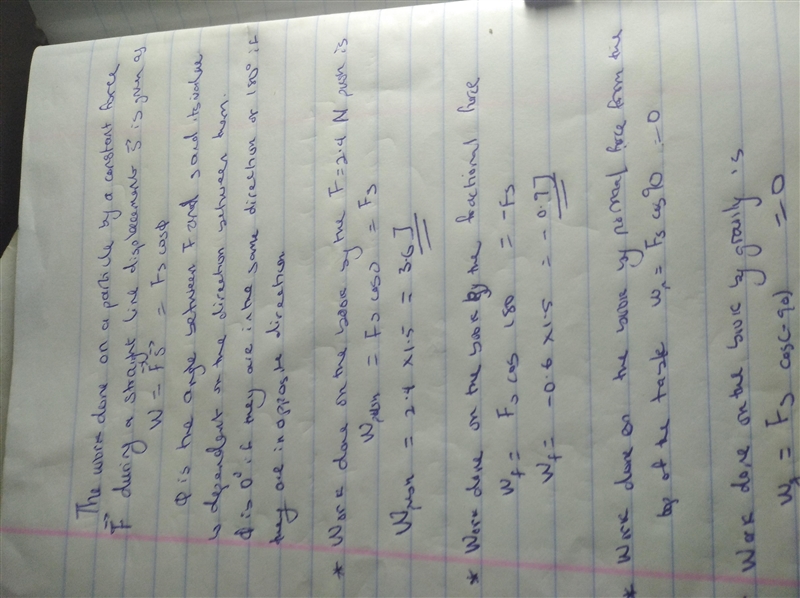 The work done on a particle by a constant force
F⃗ during a straight line displacement S⃗ is given by
W = F⃗S⃗ = Fs cosϕ
ϕ is the angle between F and s and its value
is dependent on the direction between them.
ϕ is 0° if they are in the same direction or 180° if
they are in opposite direction
* Work done on the book by the F = 2.4 N push is
Wpush = Fs cos0 = Fs
Wpush = 2.4 x 1.5 = 3.6J
* Work done on the book by the frictional force
Wf = Fs cos 180 = -Fs
Wf = -0.6 x 1.5 = -0.9J
* Work done on the book by normal force from the
top of the task Wn = Fs cos90 = 0
* Work done on the book by gravity is
Wg = Fs cos(-90) = 0